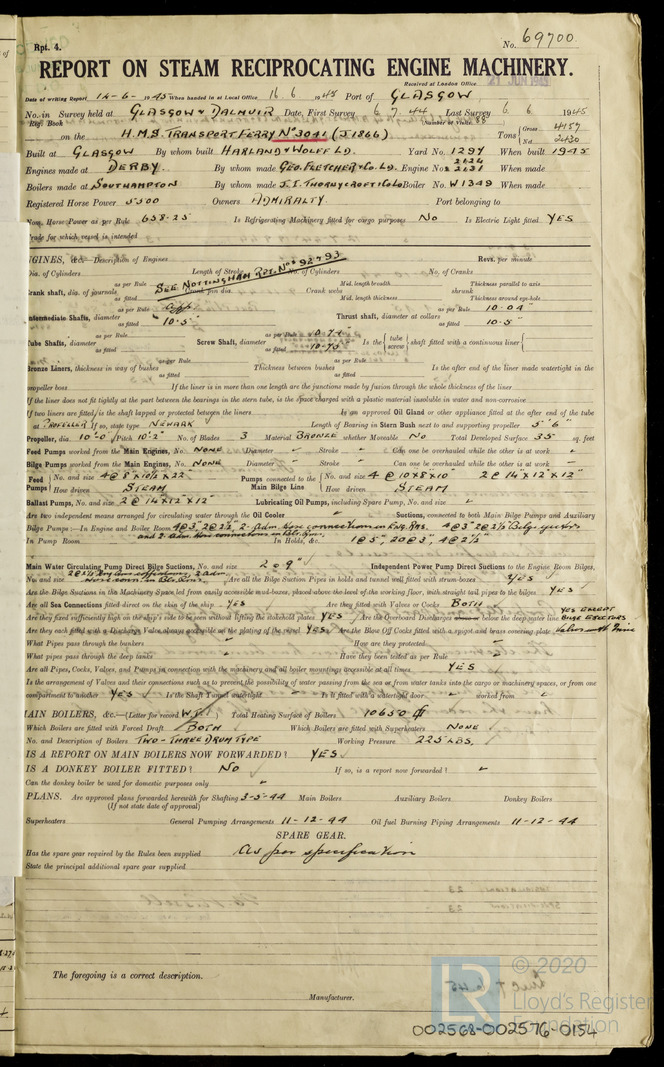 Rpt. 4.
No. 69700
REPORT ON STEAM RECIPROCATING ENGINE MACHINERY.
Received at London Office
Date of writing Report 14-6-1945 When handed in at Local Office 16 6 1945 Port of GLASGOW
No. in Survey held at GLASGOW & DALMUIR Date, First Survey 6 7 44 Last Survey 6 6 1945
Reg. Book (Number of Visits 88)
on the H.M.S. TRANSPORT FERRY No 3041 (J 1866) Tons { Gross 4157 Net 2430
Built at GLASGOW By whom built HARLAND & WOLFF LD. Yard No. 1297 When built 1945
Engines made at DERBY By whom made GEO. FLETCHER & CO. LD. Engine Nos 2124 2131 When made
Boilers made at SOUTHAMPTON By whom made J. I. THORNYCROFT & CO LD Boiler No. W1349 When made
Registered Horse Power 5500 Owners ADMIRALTY Port belonging to
Nom. Horse Power as per Rule 658.25 Is Refrigerating Machinery fitted for cargo purposes NO Is Electric Light fitted YES
Trade for which vessel is intended
ENGINES, &c.—Description of Engines Revs. per minute
Dia. of Cylinders Length of Stroke No. of Cylinders No. of Cranks
SEE NOTTINGHAM RPT. Nos 92 & 93
Crank shaft, dia. of journals as per Rule as fitted Crank pin dia. Crank webs Mid. length breadth Mid. length thickness shrunk Thickness parallel to axis Thickness around eye-hole
Intermediate Shafts, diameter as per Rule App. as fitted 10.5" Thrust shaft, diameter at collars as per Rule 10.04" as fitted 10.5"
Tube Shafts, diameter as per Rule as fitted Screw Shaft, diameter as per Rule as fitted 10.75" Is the { tube screw } shaft fitted with a continuous liner {
Bronze Liners, thickness in way of bushes as per Rule as fitted Thickness between bushes as per Rule as fitted Is the after end of the liner made watertight in the
propeller boss If the liner is in more than one length are the junctions made by fusion through the whole thickness of the liner
If the liner does not fit tightly at the part between the bearings in the stern tube, is the space charged with a plastic material insoluble in water and non-corrosive
If two liners are fitted, is the shaft lapped or protected between the liners Is an approved Oil Gland or other appliance fitted at the after end of the tube
at PROPELLER If so, state type NEWARK Length of Bearing in Stern Bush next to and supporting propeller 5' 6"
Propeller, dia. 10'-0" Pitch 10'-2" No. of Blades 3 Material BRONZE whether Moveable NO Total Developed Surface 35 sq. feet
Feed Pumps worked from the Main Engines, No. NONE Diameter Stroke Can one be overhauled while the other is at work
Bilge Pumps worked from the Main Engines, No. NONE Diameter Stroke Can one be overhauled while the other is at work
Feed Pumps { No. and size 4 @ 8" x 10½" x 22" Pumps connected to the Main Bilge Line { No. and size 4 @ 10" x 8" x 10" 2 @ 14" x 12" x 12"
How driven STEAM How driven STEAM
Ballast Pumps, No. and size 2 @ 14" x 12" x 12" Lubricating Oil Pumps, including Spare Pump, No. and size
Are two independent means arranged for circulating water through the Oil Cooler Suctions, connected to both Main Bilge Pumps and Auxiliary
Bilge Pumps;—In Engine and Boiler Room 4 @ 3", 2 @ 2½", 2-4in. hose connection in Eng. Rms. 4 @ 3" 2 @ 2½" Bilge gutters
and 2-4in. hose connections in Blr. Rms.
In Pump Room In Holds, &c. 1 @ 5", 20 @ 3", 4 @ 2½"
Main Water Circulating Pump Direct Bilge Suctions, No. and size 2 @ 9" Independent Power Pump Direct Suctions to the Engine Room Bilges,
No. and size Are all the Bilge Suction Pipes in holds and tunnel well fitted with strum-boxes YES
Are the Bilge Suctions in the Machinery Space led from easily accessible mud-boxes, placed above the level of the working floor, with straight tail pipes to the bilges YES
Are all Sea Connections fitted direct on the skin of the ship YES Are they fitted with Valves or Cocks BOTH
Are they fixed sufficiently high on the ship's side to be seen without lifting the stokehold plates YES Are the Overboard Discharges above or below the deep water line YES EXCEPT BILGE EJECTORS
Are they each fitted with a Discharge Valve always accessible on the plating of the vessel YES Are the Blow Off Cocks fitted with a spigot and brass covering plate
What Pipes pass through the bunkers How are they protected
What pipes pass through the deep tanks Have they been tested as per Rule
Are all Pipes, Cocks, Valves, and Pumps in connection with the machinery and all boiler mountings accessible at all times YES
Is the arrangement of Valves and their connections such as to prevent the possibility of water passing from the sea or from water tanks into the cargo or machinery spaces, or from one
compartment to another YES Is the Shaft Tunnel watertight Is it fitted with a watertight door worked from
MAIN BOILERS, &c.—(Letter for record W.T.) Total Heating Surface of Boilers 10650
Which Boilers are fitted with Forced Draft BOTH Which Boilers are fitted with Superheaters NONE
No. and Description of Boilers TWO - THREE DRUM TYPE Working Pressure 225 LBS.
IS A REPORT ON MAIN BOILERS NOW FORWARDED? YES
IS A DONKEY BOILER FITTED? NO If so, is a report now forwarded?
Can the donkey boiler be used for domestic purposes only
PLANS. Are approved plans forwarded herewith for Shafting 3-5-44 Main Boilers Auxiliary Boilers Donkey Boilers
(If not state date of approval)
Superheaters General Pumping Arrangements 11-12-44 Oil fuel Burning Piping Arrangements 11-12-44
SPARE GEAR.
Has the spare gear required by the Rules been supplied As per specification
State the principal additional spare gear supplied
The foregoing is a correct description.
Manufacturer.
LR © 2020
Lloyd's Register
Foundation
002568-002576-0154